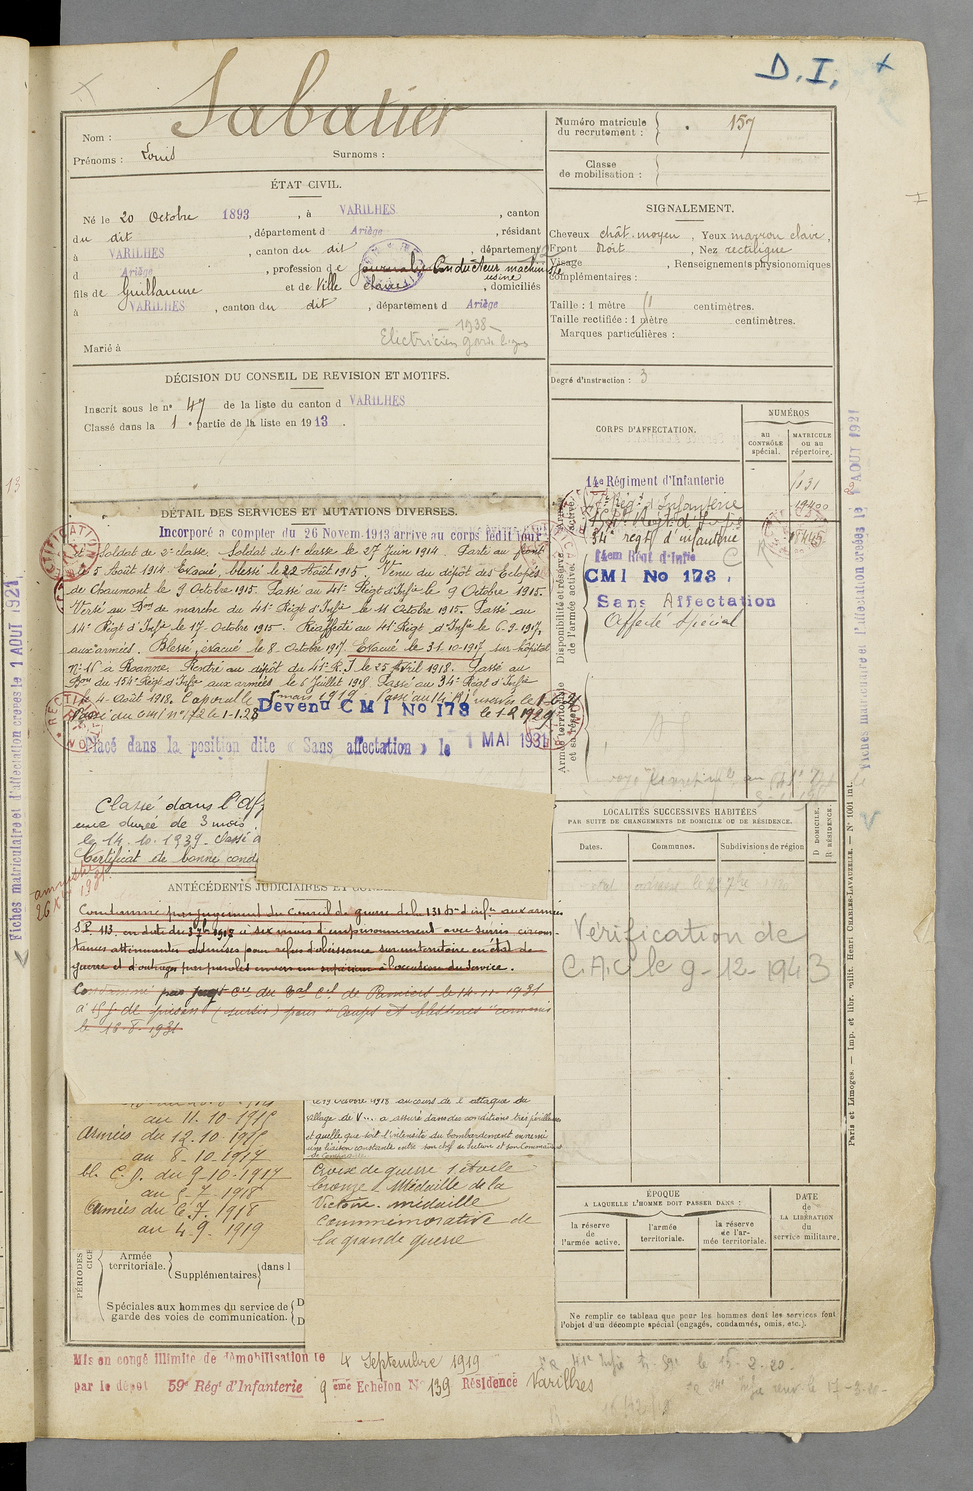 D. I. +
Sabatier
Nom :
Prénoms : Louis Surnoms :
ÉTAT CIVIL.
Né le 20 Octobre 1893, à VARILHES, canton
du dit, département d Ariège, résidant
à VARILHES, canton du dit, département
d Ariège, profession de journalier Conducteur machiniste
usine
fils de Guillaume et de Ville Claire, domiciliés
à VARILHES canton du dit, département d Ariège
— 1938 —
Marié à Electricien
DÉCISION DU CONSEIL DE REVISION ET MOTIFS.
Inscrit sous le n° 47 de la liste du canton d VARILHES
Classé dans la 1e partie de la liste en 1913.
DÉTAIL DES SERVICES ET MUTATIONS DIVERSES.
Incorporé à compter du 26 Novem.1913 arrivé au corps ledit jour
et Soldat de 2e classe. Soldat de 1e classe le 27 Juin 1914. Parti au front
le 5 Août 1914. Evacué, blessé le 22 Août 1915. Venu du dépôt des Eclopés
de Chaumont le 9 Octobre 1915. Passé au 41e Régt d'Infie le 9 Octobre 1915.
Versé au Bon de marche du 41e Régt d'Infie le 11 Octobre 1915. Passé au
14e Régt d'Infie le 17 Octobre 1915. Réaffecté au 41e Régt d'Infie le 6-9-1917,
aux armées. Blessé, évacué le 8 Octobre 1917. Evacué le 31-10-1917 sur hôpital
n° 16 à Roanne. Rentré au dépôt du 41e R.I le 25 Avril 1918. Passé au
Bon du 154e Régt d'Infie aux armées le 6 Juillet 1918. Passé au 34e Régt d'Infie
le 4 Août 1918. Caporal le 5 mars 1919. Passé au 14 RI
Passé au CMI n° 172 le 1-1-28 Devenu CMI No 173 le 1-2 1929
Placé dans la position dite « Sans affectation » le 1 MAI 1931
Classé dans l'Aff
une durée de 3 mois
le 14.10.1939. Classé
Certificat de bonne condu
amnistié
ANTÉCÉDENTS JUDICIAIRES ET
Condamné par jugement du Conseil de guerre de la 131 Don d'infie aux armées
S.P. 113, en date du 3 7bre 1918 à six mois d'emprisonnement avec sursis circons-
tances atténuantes admises pour refus d'obéissance sur un territoire en état de
guerre et d'outrages par paroles envers un supérieur à l'occasion du service.
Condamné par jugt Cel du Tal Cel de Pamiers le 14-11-1931
à 15 f. de prison (sursis) pour "Coups et blessures" commis
le 18-8-1931
au 11.10-1915
Armées du 12.10-1915
au 8-10-1917
bl. C. D. du 9-10-1917
au 5-7-1918
Armées du 6.7.1918
au 4.9.1919
le 19 Octobre 1918 au cours de l'attaque du
village de V... a assuré dans des conditions très périlleuses
et quelle que soit l'intensité du bombardement ennemi
une liaison constante entre son chef de section et son Commandant
de Compagnie
Croix de guerre 1 étoile
bronze. Médaille de la
Victoire. médaille
Commémorative de
la grande guerre
PÉRIODES
Armée
territoriale. Supplémentaires dans l
Spéciales aux hommes du service de
garde des voies de communication.
Mis en congé illimité de démobilisation le 4 Septembre 1919
par le dépôt 59e Régt d'Infanterie 9 ème Echelon N° 139 Résidence Varilhes
Numéro matricule
du recrutement : 157
Classe
de mobilisation :
SIGNALEMENT.
Cheveux chât. moyen, Yeux marron clair,
Front Droit, Nez rectiligne
Visage, Renseignements physionomiques
complémentaires :
Taille : 1 mètre centimètres.
Taille rectifiée : 1 mètre centimètres.
Marques particulières :
Degré d'instruction : 3
CORPS D'AFFECTATION.
NUMÉROS
au
CONTRÔLE
spécial.
MATRICULE
ou au
répertoire.
Disponibilité et réserve
de l'armée active.
Armée territoriale
et sa réserve.
14e Régiment d'Infanterie
34e régt d'infanterie
14em Régt d'Infie
CMI No 173.
Sans Affectation
Affecté Spécial
LOCALITÉS SUCCESSIVES HABITÉES
PAR SUITE DE CHANGEMENTS DE DOMICILE OU DE RÉSIDENCE.
Dates. Communes. Subdivisions de région
D DOMICILE.
R RÉSIDENCE.
Vérification de
C.A.C le 9-12-1943
ÉPOQUE
A LAQUELLE L'HOMME DOIT PASSER DANS :
la réserve
de l'armée active.
l'armée
territoriale.
la réserve
de l'ar-
mée territoriale.
DATE
de
LA LIBÉRATION
du
service militaire.
Ne remplir ce tableau que pour les hommes dont les services font
l'objet d'un décompte spécial (engagés, condamnés, omis, etc.).
Paris et Limoges. — Imp. et libr. milit. Henri CHARLES-LAVAUZELLE. — N° 1001 int.
Fiches matriculaire et d'affectation créées le 1 AOUT 1921
Fiches matriculaire et d'affectation créées le 1 AOUT 1921